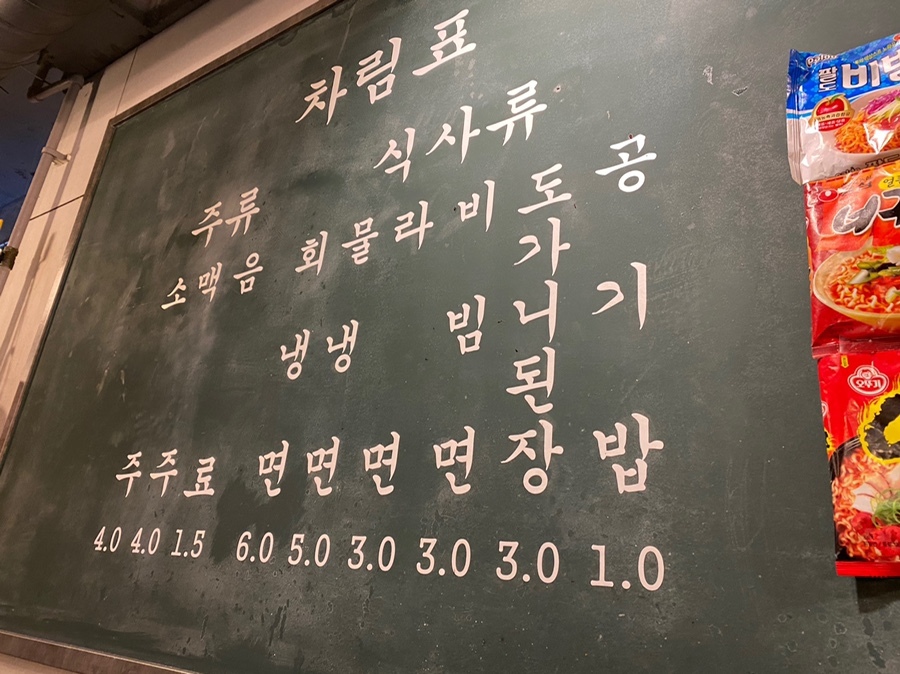 차림표
주류
소주 4.0
맥주 4.0
음료 1.5
식사류
회냉면 6.0
물냉면 5.0
라면 3.0
비빔면 3.0
도가니된장 3.0
공기밥 1.0
팔도
오뚜기